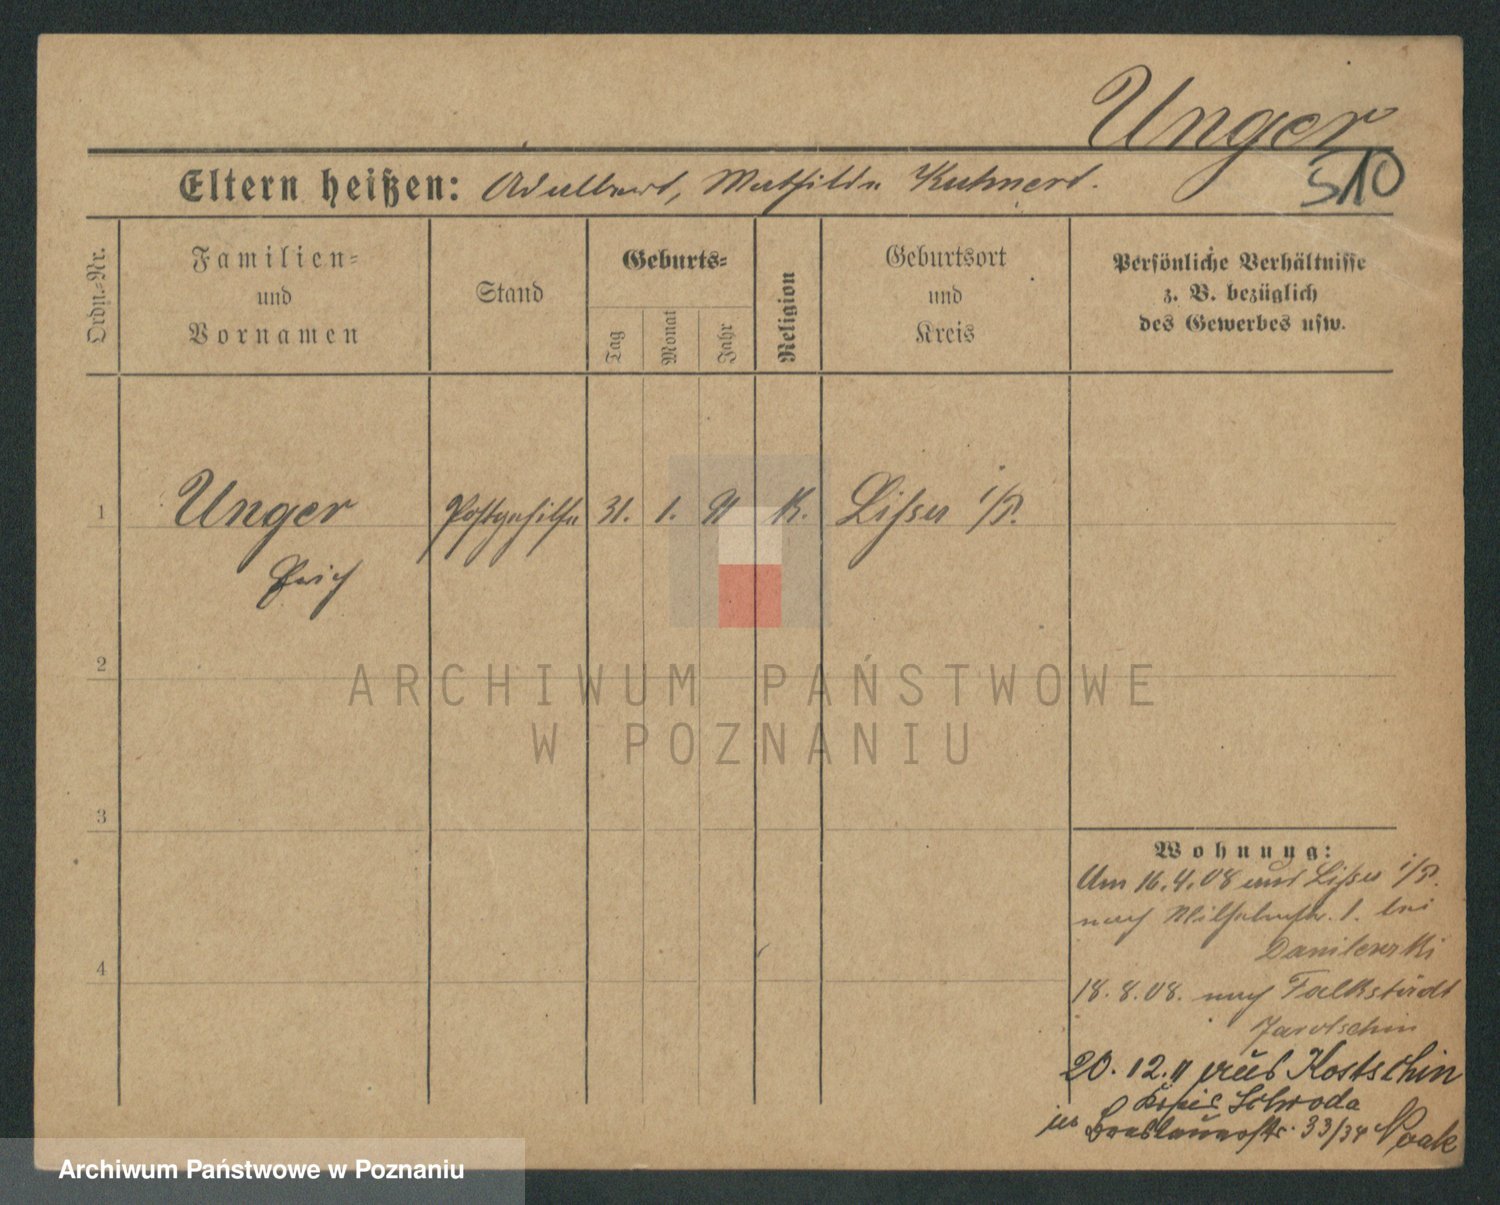 Unger
510
Eltern heißen: Adalbert, Mathilde Kuhnert.
Ordn.-Nr.
Familien-
und
Vornamen
Stand
Geburts-
Tag
Monat
Jahr
Religion
Geburtsort
und
Kreis
Persönliche Verhältnisse
z. B. bezüglich
des Gewerbes usw.
1
Unger
Erich
Postgehilfe
31.
1.
91
K.
Lissa i/P.
2
3
4
Wohnung:
Am 16.4.08 aus Lissa i/P.
nach Wilhelmstr. 1. bei
18.8.08. nach Falkstädt
Jarotschin
20.12.11 aus Kostschin
Kreis Schroda
Breslauerstr. 33/34 Noak
ARCHIWUM PAŃSTWOWE
W POZNANIU
Archiwum Państwowe w Poznaniu